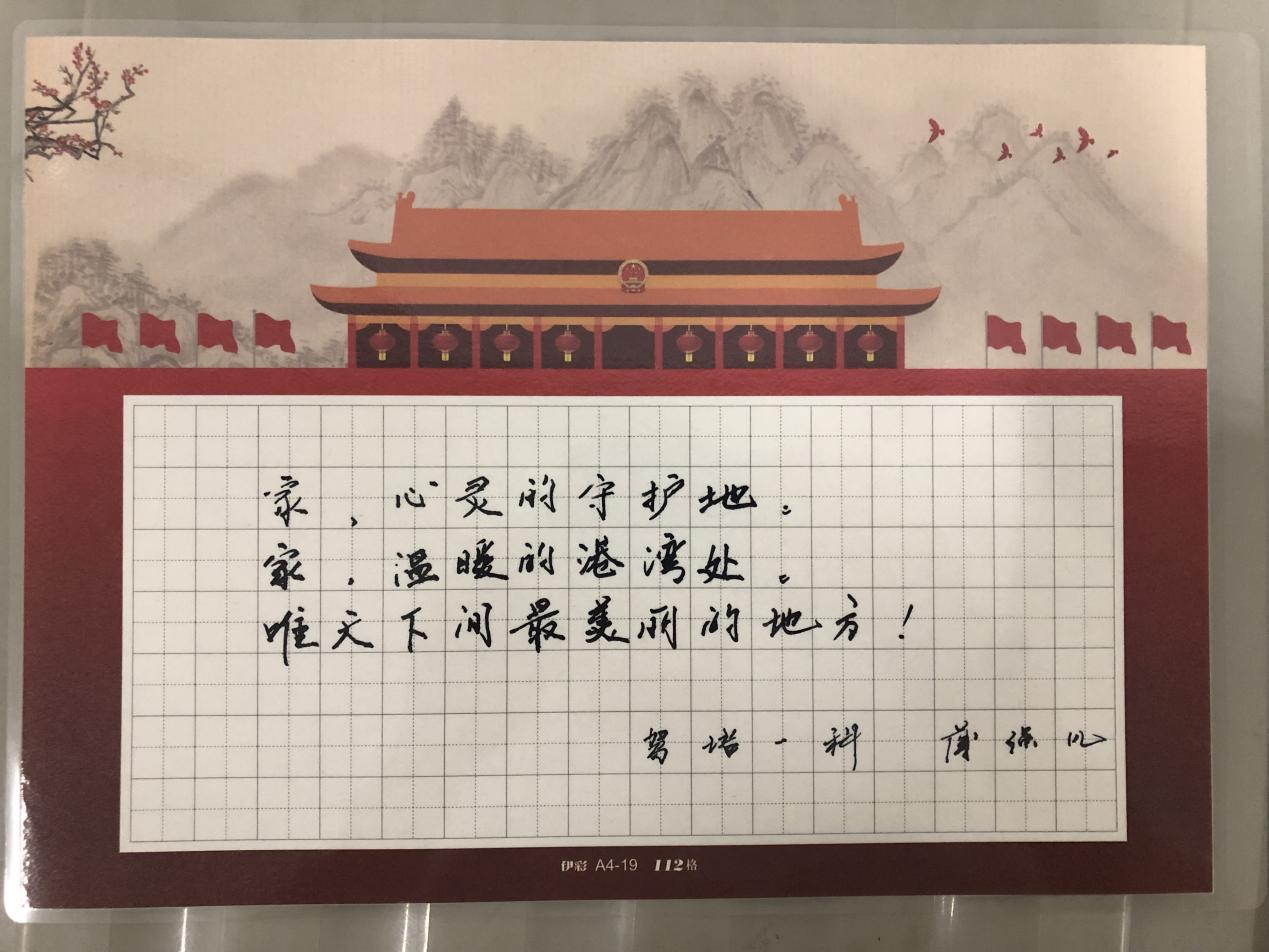 家，心灵的守护地。
家，温暖的港湾处。
唯天下间最美丽的地方！
驾培一科
伊彩 A4-19 112格